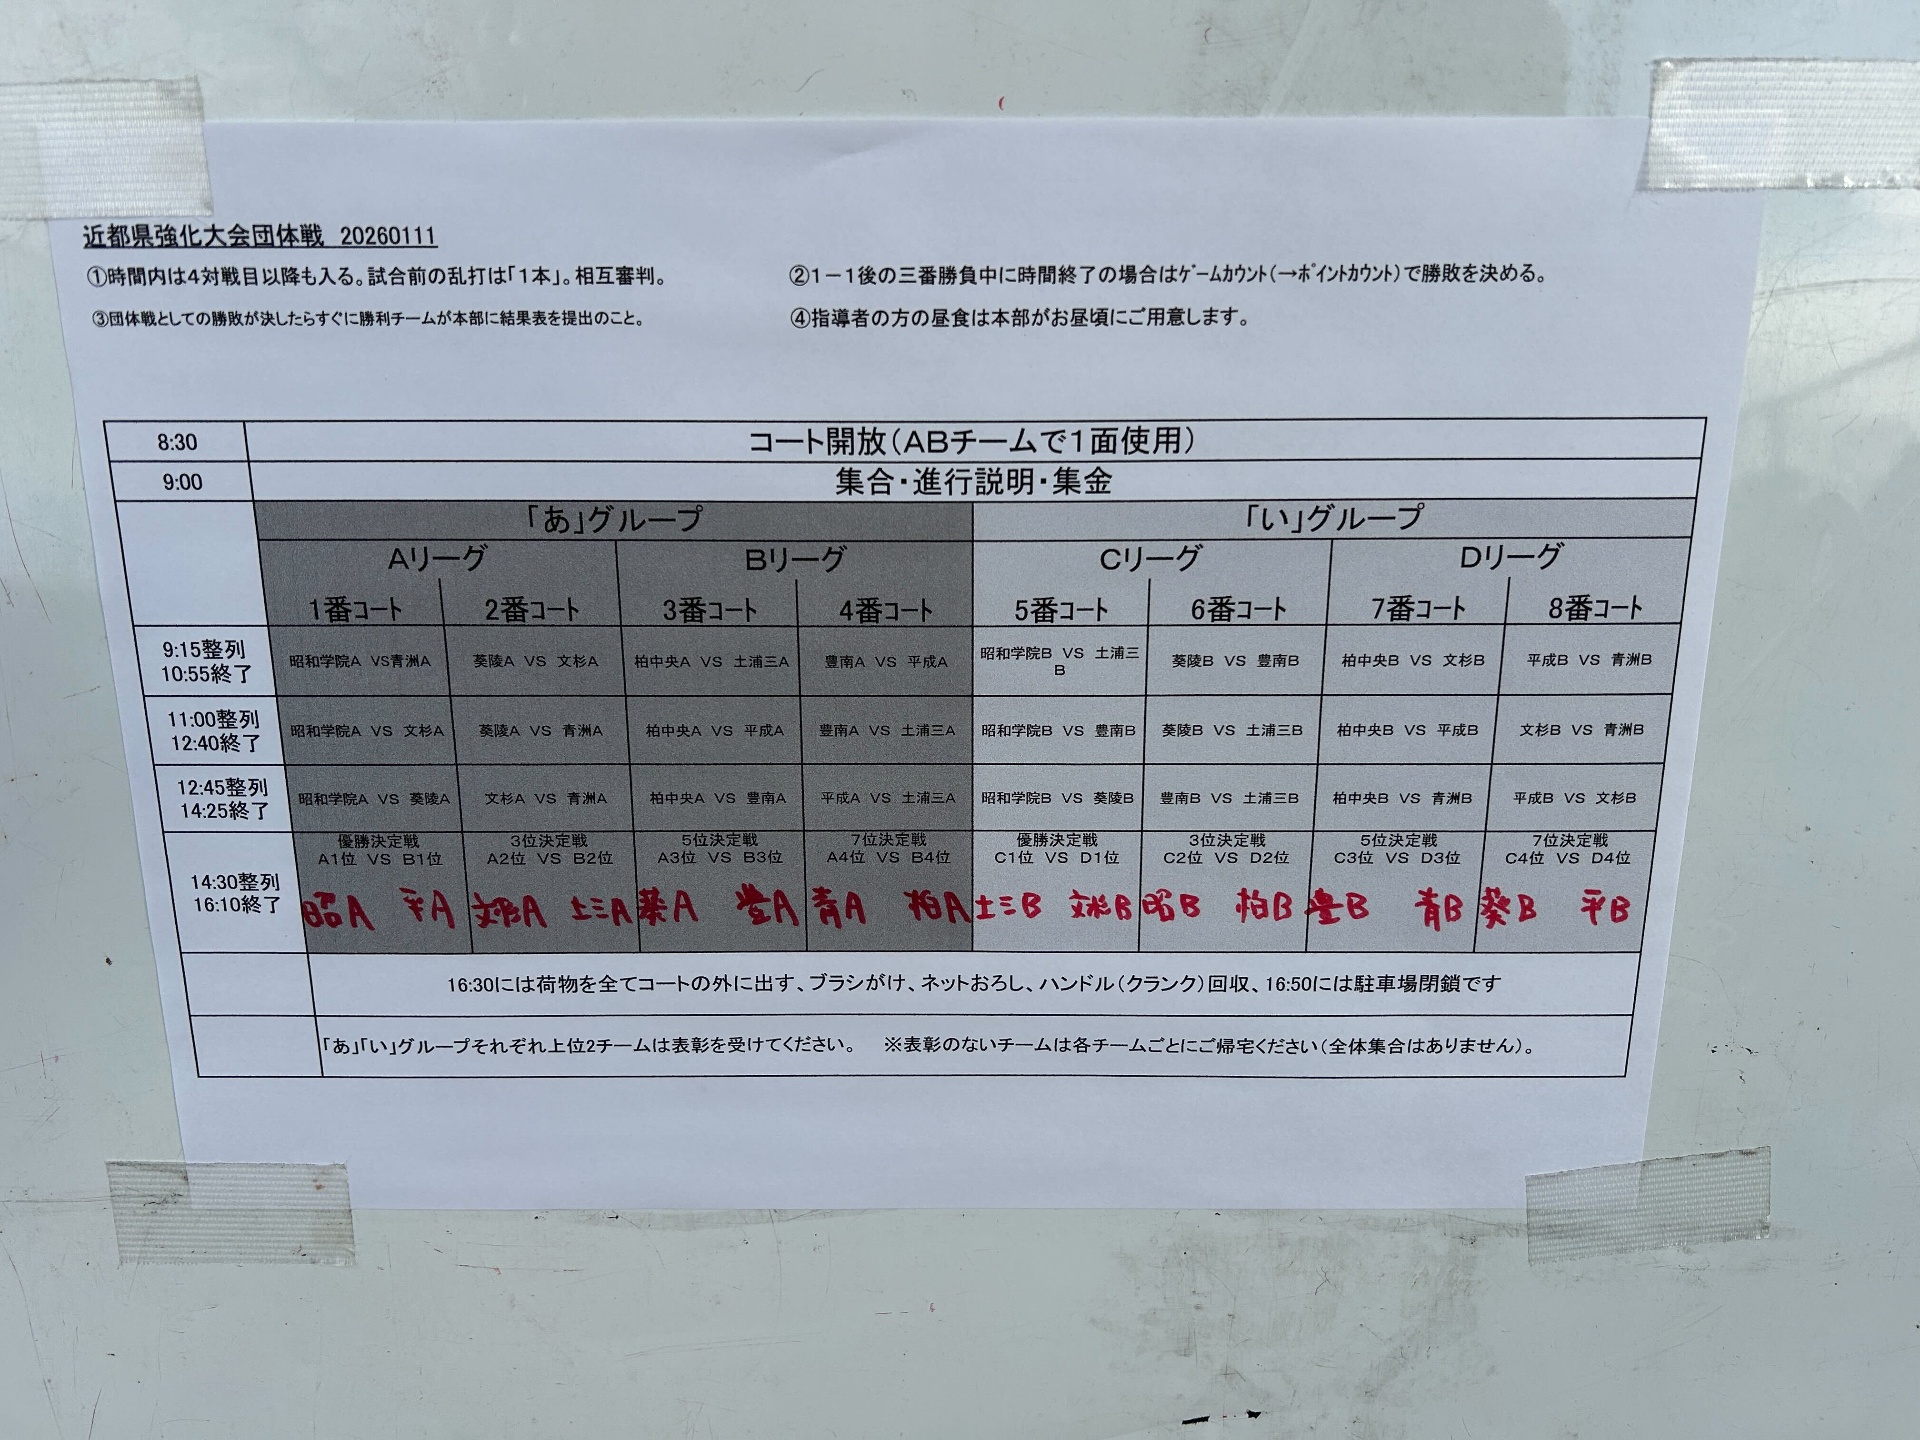 近都県強化大会団体戦　20260111
①時間内は4対戦目以降も入る。試合前の乱打は「1本」。相互審判。　②1－1後の三番勝負中に時間終了の場合はｹﾞｰﾑｶｳﾝﾄ(→ﾎﾟｲﾝﾄｶｳﾝﾄ)で勝敗を決める。
③団体戦としての勝敗が決したらすぐに勝利チームが本部に結果表を提出のこと。　④指導者の方の昼食は本部がお昼頃にご用意します。
8:30　コート開放(ABチームで1面使用)
9:00　集合・進行説明・集金
「あ」グループ　「い」グループ
Aリーグ　Bリーグ　Cリーグ　Dリーグ
1番ｺｰﾄ　2番ｺｰﾄ　3番ｺｰﾄ　4番ｺｰﾄ　5番ｺｰﾄ　6番ｺｰﾄ　7番ｺｰﾄ　8番ｺｰﾄ
9:15整列
10:55終了
昭和学院A VS青洲A　葵陵A VS 文杉A　柏中央A VS 土浦三A　豊南A VS 平成A　昭和学院B VS 土浦三B　葵陵B VS 豊南B　柏中央B VS 文杉B　平成B VS 青洲B
11:00整列
12:40終了
昭和学院A VS 文杉A　葵陵A VS 青洲A　柏中央A VS 平成A　豊南A VS 土浦三A　昭和学院B VS 豊南B　葵陵B VS 土浦三B　柏中央B VS 平成B　文杉B VS 青洲B
12:45整列
14:25終了
昭和学院A VS 葵陵A　文杉A VS 青洲A　柏中央A VS 豊南A　平成A VS 土浦三A　昭和学院B VS 葵陵B　豊南B VS 土浦三B　柏中央B VS 青洲B　平成B VS 文杉B
14:30整列
16:10終了
優勝決定戦　3位決定戦　5位決定戦　7位決定戦　優勝決定戦　3位決定戦　5位決定戦　7位決定戦
A1位 VS B1位　A2位 VS B2位　A3位 VS B3位　A4位 VS B4位　C1位 VS D1位　C2位 VS D2位　C3位 VS D3位　C4位 VS D4位
昭A　平A　文杉A　土三A　葵A　豊A　青A　柏A　土三B　文杉B　昭B　柏B　豊B　青B　葵B　平B
16:30には荷物を全てコートの外に出す、ブラシがけ、ネットおろし、ハンドル(クランク)回収、16:50には駐車場閉鎖です
「あ」「い」グループそれぞれ上位2チームは表彰を受けてください。　※表彰のないチームは各チームごとにご帰宅ください(全体集合はありません)。